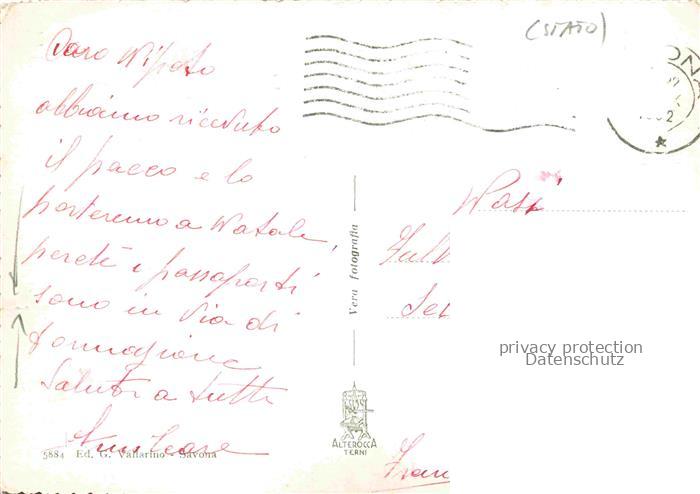 (STATO)
Caro Nipote
abbiamo ricevuto
il pacco e lo
porteremo a Natale,
perchè i passaporti
sono in via di
formazione
Saluti a tutti
Amilcare
5884 Ed. G. Vallarino - Savona
Vera fotografia
ALTEROCCA
TERNI
privacy protection
Datenschutz